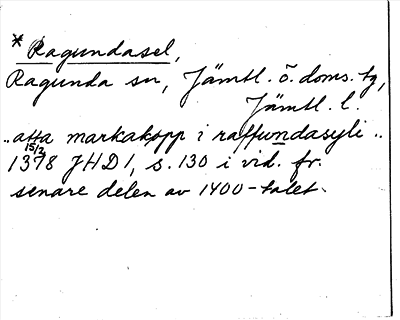 * Ragundasel,
Ragunda sn, Jämtl. ö. doms. tg,
Jämtl. l.
"atta markakopp i raffundasyli"
15/2
1378 JHD 1, s. 130 i vid. fr.
senare delen av 1400-talet.